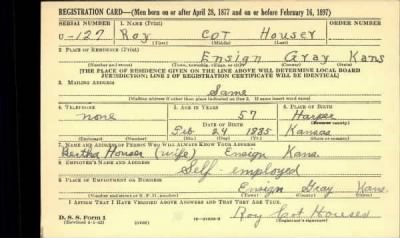 REGISTRATION CARD—(Men born on or after April 28, 1877 and on or before February 16, 1897)
SERIAL NUMBER 1. NAME (Print)
U-127 Roy Cot Houser
(First) (Middle) (Last)
2. PLACE OF RESIDENCE (Print)
Ensign Gray Kans
(Number and street) (Town, township, village, or city) (County) (State)
[THE PLACE OF RESIDENCE GIVEN ON THE LINE ABOVE WILL DETERMINE LOCAL BOARD
JURISDICTION; LINE 2 OF REGISTRATION CERTIFICATE WILL BE IDENTICAL]
3. MAILING ADDRESS
Same
[Mailing address if other than place indicated on line 2. If same insert word same]
4. TELEPHONE 5. AGE IN YEARS 6. PLACE OF BIRTH
none 57 Harper
DATE OF BIRTH (Town or county)
Feb 24 1885 Kansas
(Exchange) (Number) (Mo.) (Day) (Yr.) (State or country)
7. NAME AND ADDRESS OF PERSON WHO WILL ALWAYS KNOW YOUR ADDRESS
Bertha Houser (wife) Ensign Kans.
8. EMPLOYER'S NAME AND ADDRESS
Self employed
9. PLACE OF EMPLOYMENT OR BUSINESS
Ensign Gray Kans.
(Number and street or R. F. D. number) (Town) (County) (State)
I AFFIRM THAT I HAVE VERIFIED ABOVE ANSWERS AND THAT THEY ARE TRUE.
D. S. S. Form 1
(Revised 4-1-42) (over) Roy Cot Houser